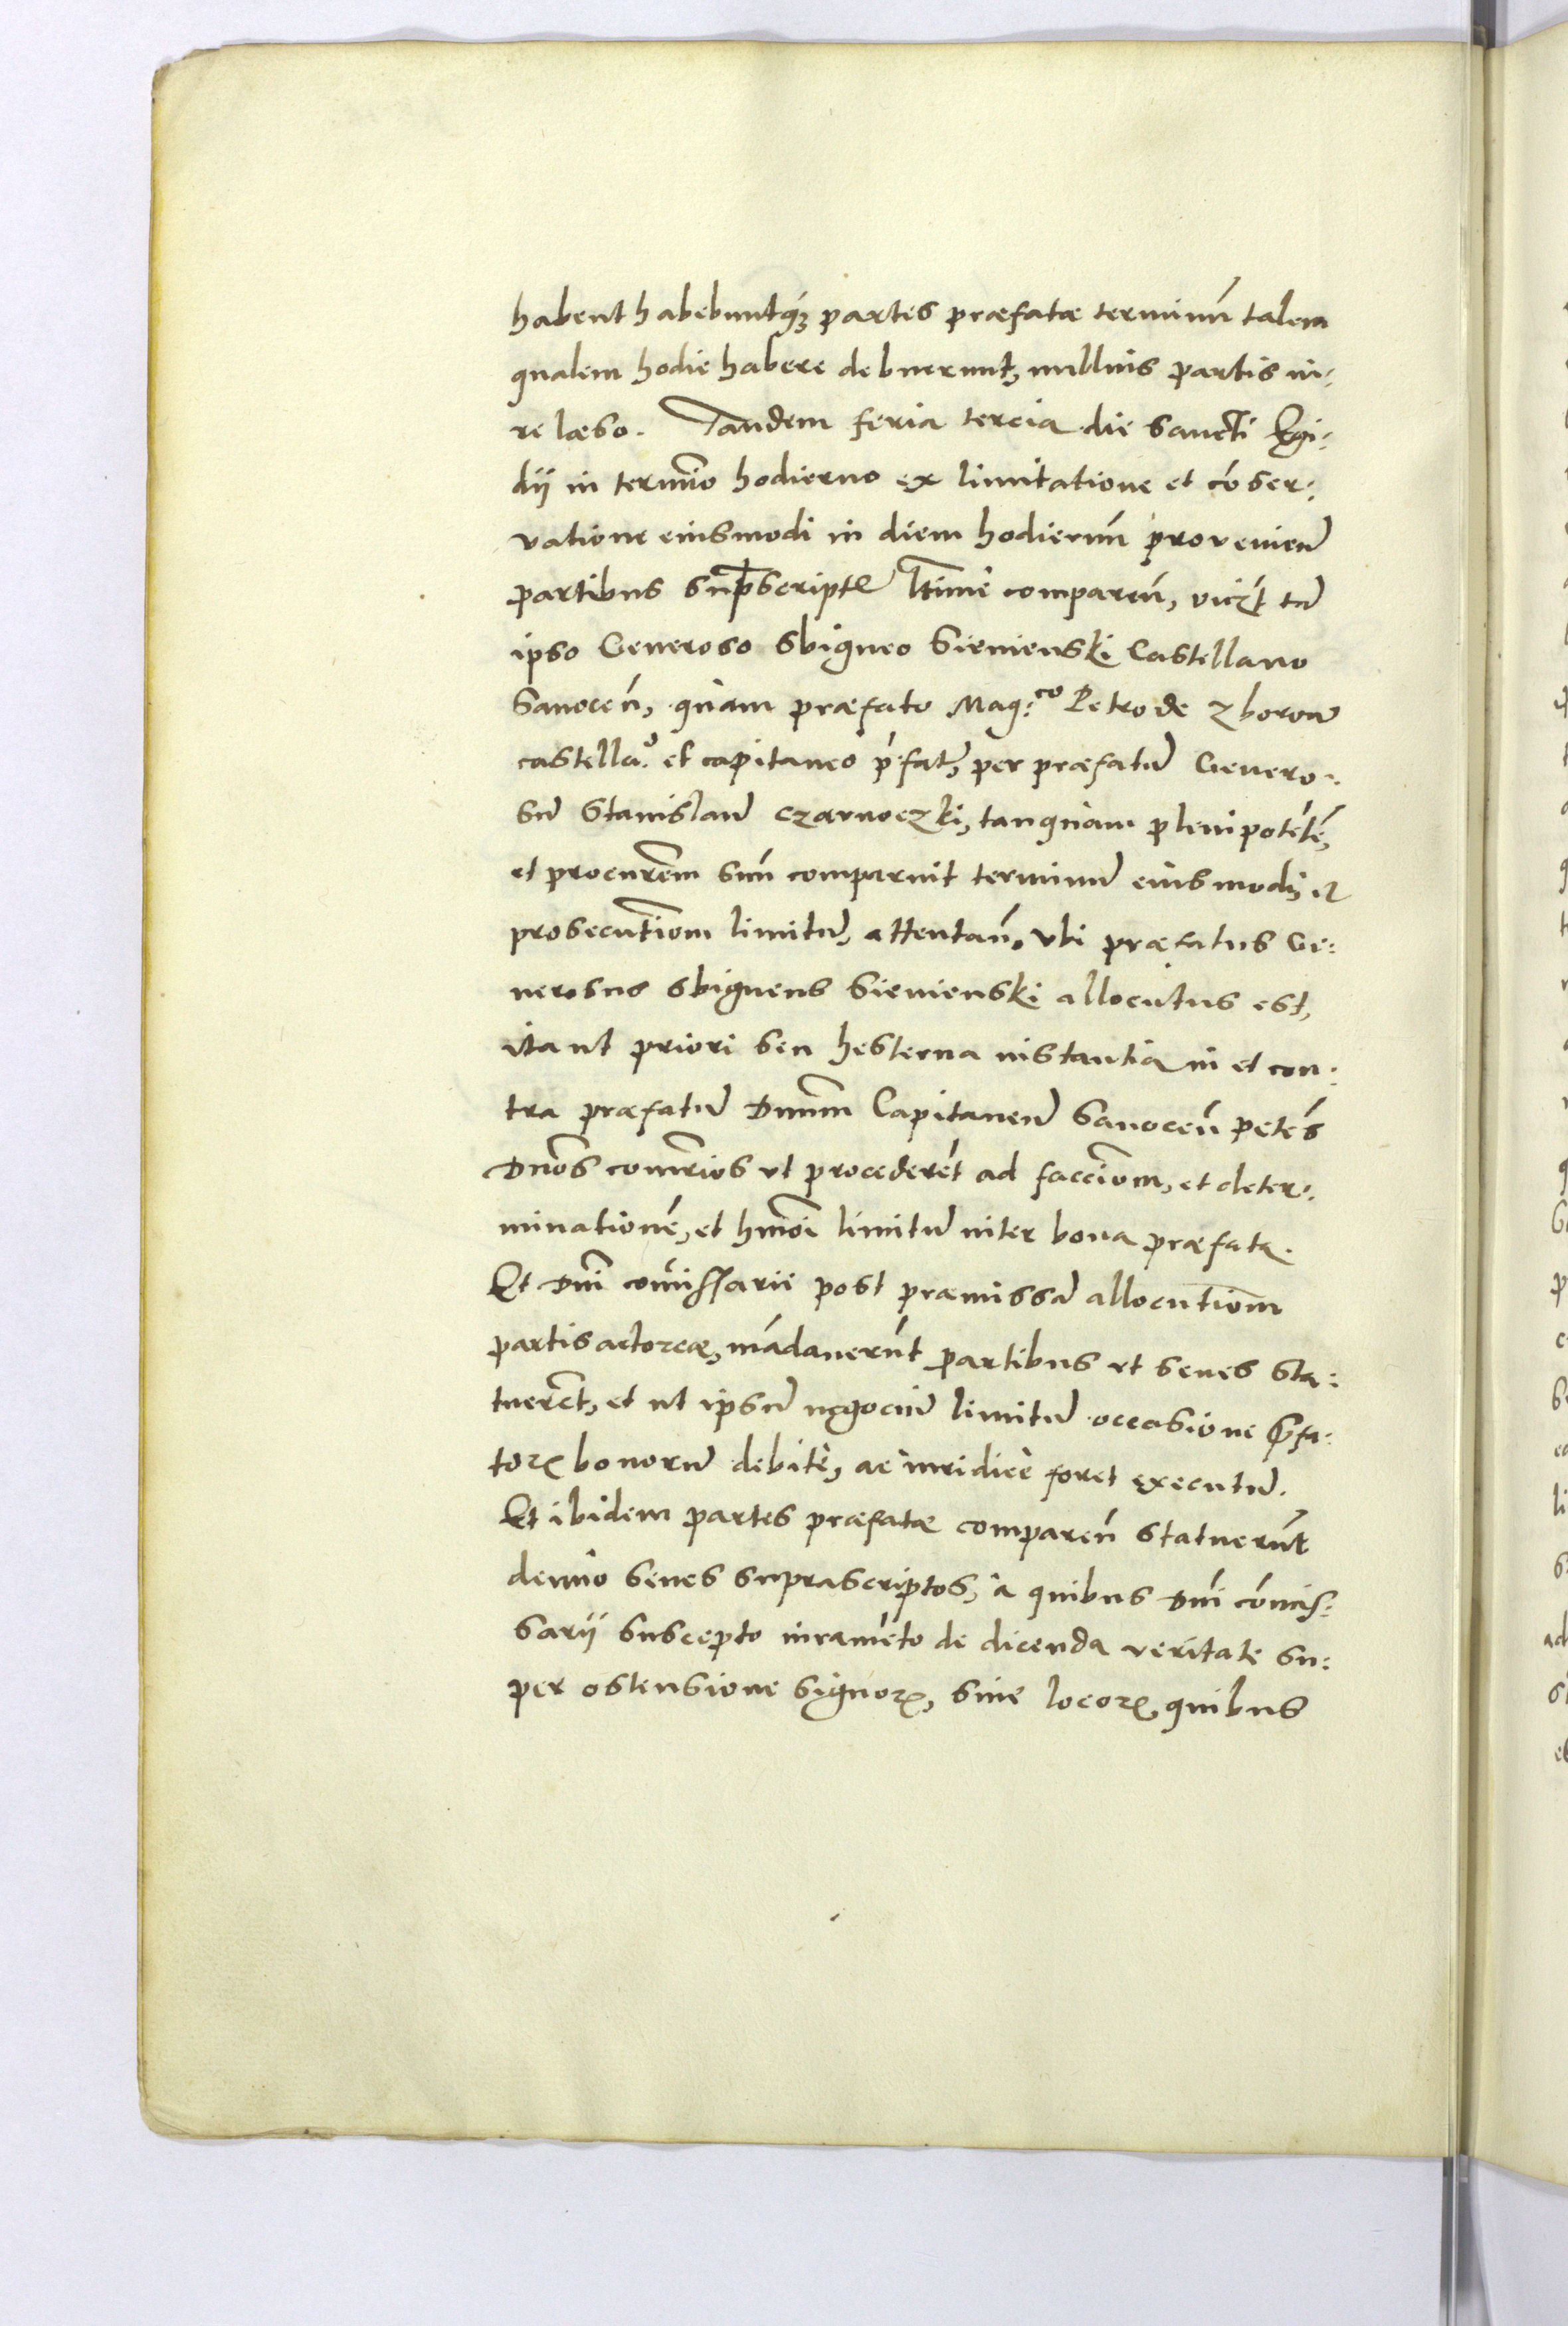 habent habebuntq3 partes præfatæ terminũ talem
qualem hodie habere debuerunt, nullius partis iu:
re læso. Tandem feria tercia die sancti Egi:
dij in termĩo hodierno ex limitatione et cõser:
vatione eiusmodi in diem hodiernũ provenieñ
partibus sup̃script̃ ltime compareñ, vicz̃ tã
ipso Generoso Sbigneo Sienienski Castellano
Sanoceñ, quàm præfato Mag:co Petro de Zborow
castella:o et capitaneo p̃fat, per præfatũ Genero:
sũ Stanislaũ Czarnoczki, tanquam plenipotẽtẽ,
et procurẽm suũ comparuit terminũ eiusmodi, et
prosecutiõm limitũ, attentañ. Vbi præfatus Ge:
nerosus Sbigneus Sienienski allocutus est,
ita ut priori seu hesterna instantia in et con:
tra præfatũ Dnũm Capitaneũ Sanoceñ petẽs
Dnõs comr̃ios ut procederẽt ad facciõm, et deter:
minationẽ, et hmõi limitũ inter bona præfata.
Et Dnĩ com̃issarii post præmissã allocutiõm
partis actoreæ, mãdaverũt partibus ut senes sta:
tuerẽt, et ut ipsũ negociũ limitũ occasione p̃fa:
torꝝ bonorũ debitè, ac iuridicè foret executũ.
Et ibidem partes præfatæ compareñ statuerũt
denuo senes suprascriptos, à quibus Dnĩ com̃is:
sarij suscepto iuramẽto de dicenda veritate su:
per ostensione signorꝝ, siue locorꝝ quibus